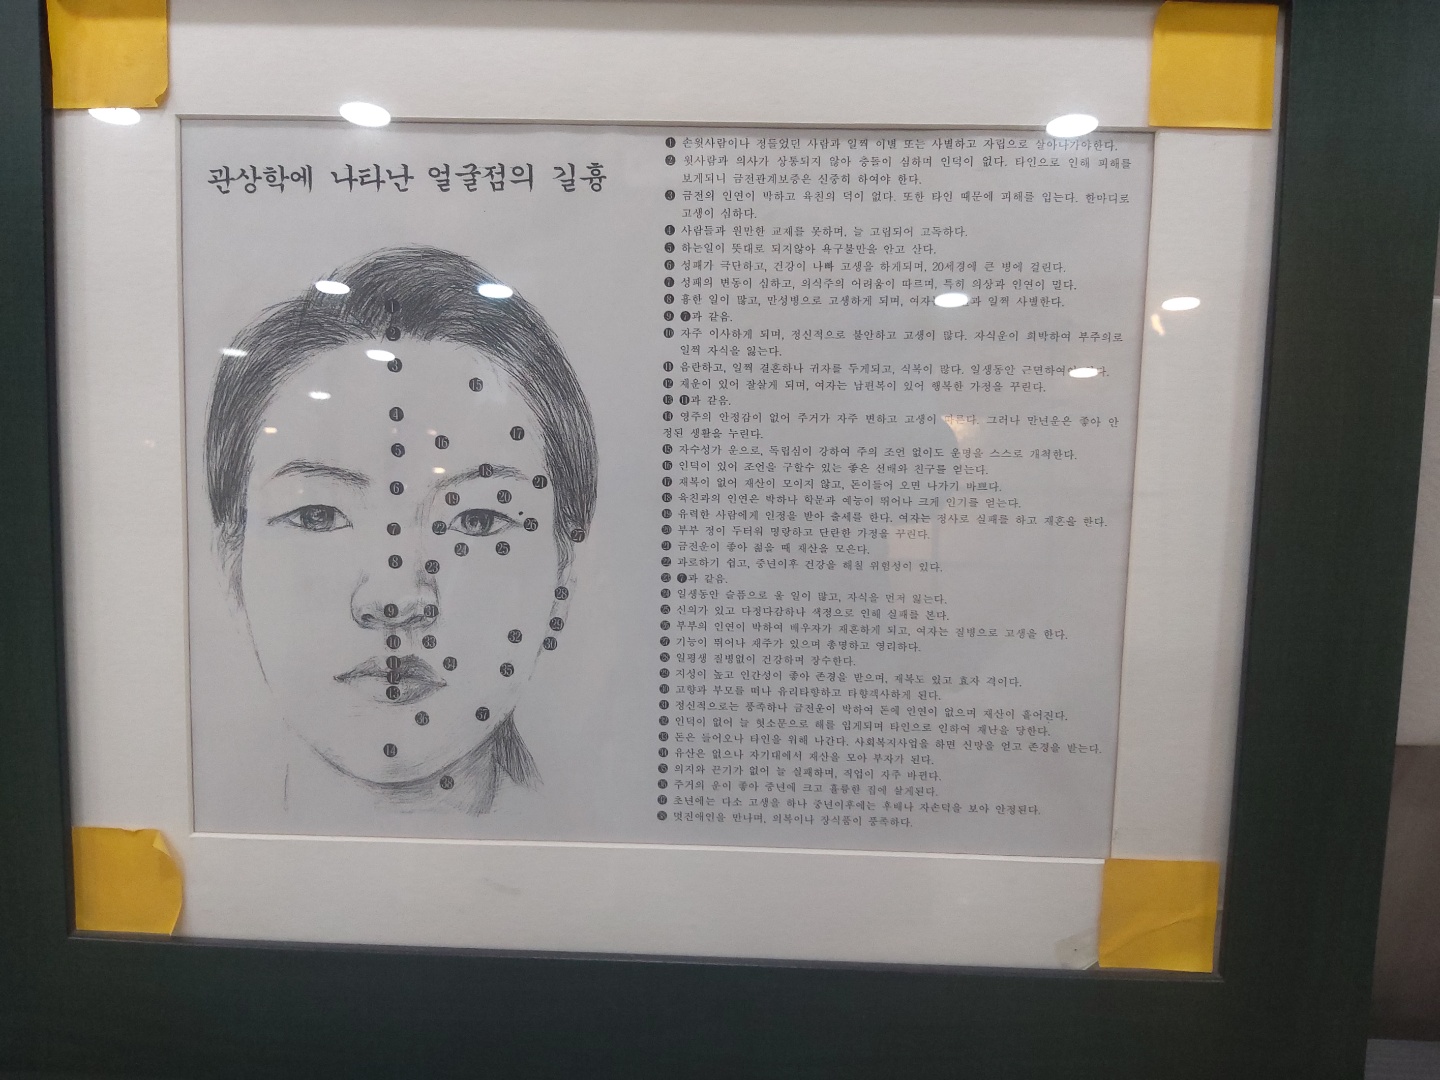 관상학에 나타난 얼굴점의 길흉
1 손윗사람이나 정들었던 사람과 일찍 이별 또는 사별하고 자립으로 살아나가야한다.
2 윗사람과 의사가 상통되지 않아 충돌이 심하며 인덕이 없다. 타인으로 인해 피해를
보게되니 금전관계보증은 신중히 하여야 한다.
3 금전의 인연이 박하고 육친의 덕이 없다. 또한 타인 때문에 피해를 입는다. 한마디로
고생이 심하다.
4 사람들과 원만한 교제를 못하며, 늘 고립되어 고독하다.
5 하는일이 뜻대로 되지않아 욕구불만을 안고 산다.
6 성패가 극단하고, 건강이 나빠 고생을 하게되며, 20세경에 큰 병에 걸린다.
7 성패의 변동이 심하고, 의식주의 어려움이 따르며, 특히 의상과 인연이 멀다.
8 흉한 일이 많고, 만성병으로 고생하게 되며, 일찍 사별한다.
9 7과 같음.
10 자주 이사하게 되며, 정신적으로 불안하고 고생이 많다. 자식운이 희박하여 부주의로
일찍 자식을 잃는다.
11 음란하고, 일찍 결혼하나 귀자를 두게되고, 식복이 많다. 일생동안
12 재운이 있어 잘살게 되며, 여자는 남편복이 있어 행복한 가정을 꾸린다.
13 11과 같음.
14 영주의 안정감이 없어 주거가 자주 변하고 고생이 따른다. 그러나 만년운은 좋아 안
정된 생활을 누린다.
15 자수성가 운으로, 독립심이 강하여 주의 조언 없이도 운명을 스스로 개척한다.
16 인덕이 있이 조언을 구할수 있는 좋은 선배와 친구를 얻는다.
17 재복이 없어 재산이 모이지 않고, 돈이들어 오면 나가기 바쁘다.
18 육친과의 인연은 박하나 학문과 예능이 뛰어나 크게 인기를 얻는다.
19 유력한 사람에게 인정을 받아 출세를 한다. 여자는 정사로 실패를 하고 재혼을 한다.
20 부부 정이 두터워 명랑하고 단란한 가정을 꾸린다.
21 금전운이 좋아 젊을 때 재산을 모은다.
22 과로하기 쉽고, 중년이후 건강을 해칠 위험성이 있다.
23 7과 같음.
24 일생동안 슬픔으로 울 일이 많고, 자식을 먼저 잃는다.
25 신의가 있고 다정다감하나 색정으로 인해 실패를 본다.
26 부부의 인연이 박하여 배우자가 재혼하게 되고, 여자는 질병으로 고생을 한다.
27 기능이 뛰어나 재주가 있으며 총명하고 영리하다.
28 일평생 질병없이 건강하며 장수한다.
29 지성이 높고 인간성이 좋아 존경을 받으며, 재복도 있고 효자 격이다.
30 고향과 부모를 떠나 유리타향하고 타향객사하게 된다.
31 정신적으로는 풍족하나 금전운이 박하여 돈에 인연이 없으며 재산이 흩어진다.
32 인덕이 없어 늘 헛소문으로 해를 입게되며 타인으로 인하여 재난을 당한다.
33 돈은 들어오나 타인을 위해 나간다. 사회복지사업을 하면 신망을 얻고 존경을 받는다.
34 유산은 없으나 자기대에서 재산을 모아 부자가 된다.
35 의지와 끈기가 없이 늘 실패하며, 직업이 자주 바뀐다.
36 주거의 운이 좋아 중년에 크고 훌륭한 집에 살게된다.
37 초년에는 다소 고생을 하나 중년이후에는 후배나 자손덕을 보아 안정된다.
38 멋진애인을 만나며, 의복이나 장식품이 풍족하다.
1
2
3
15
4
17
5
16
18
21
6
19
20
7
22
26
27
24
25
8
23
28
9
31
29
10
33
32
30
11
34
35
12
13
36
37
14
38